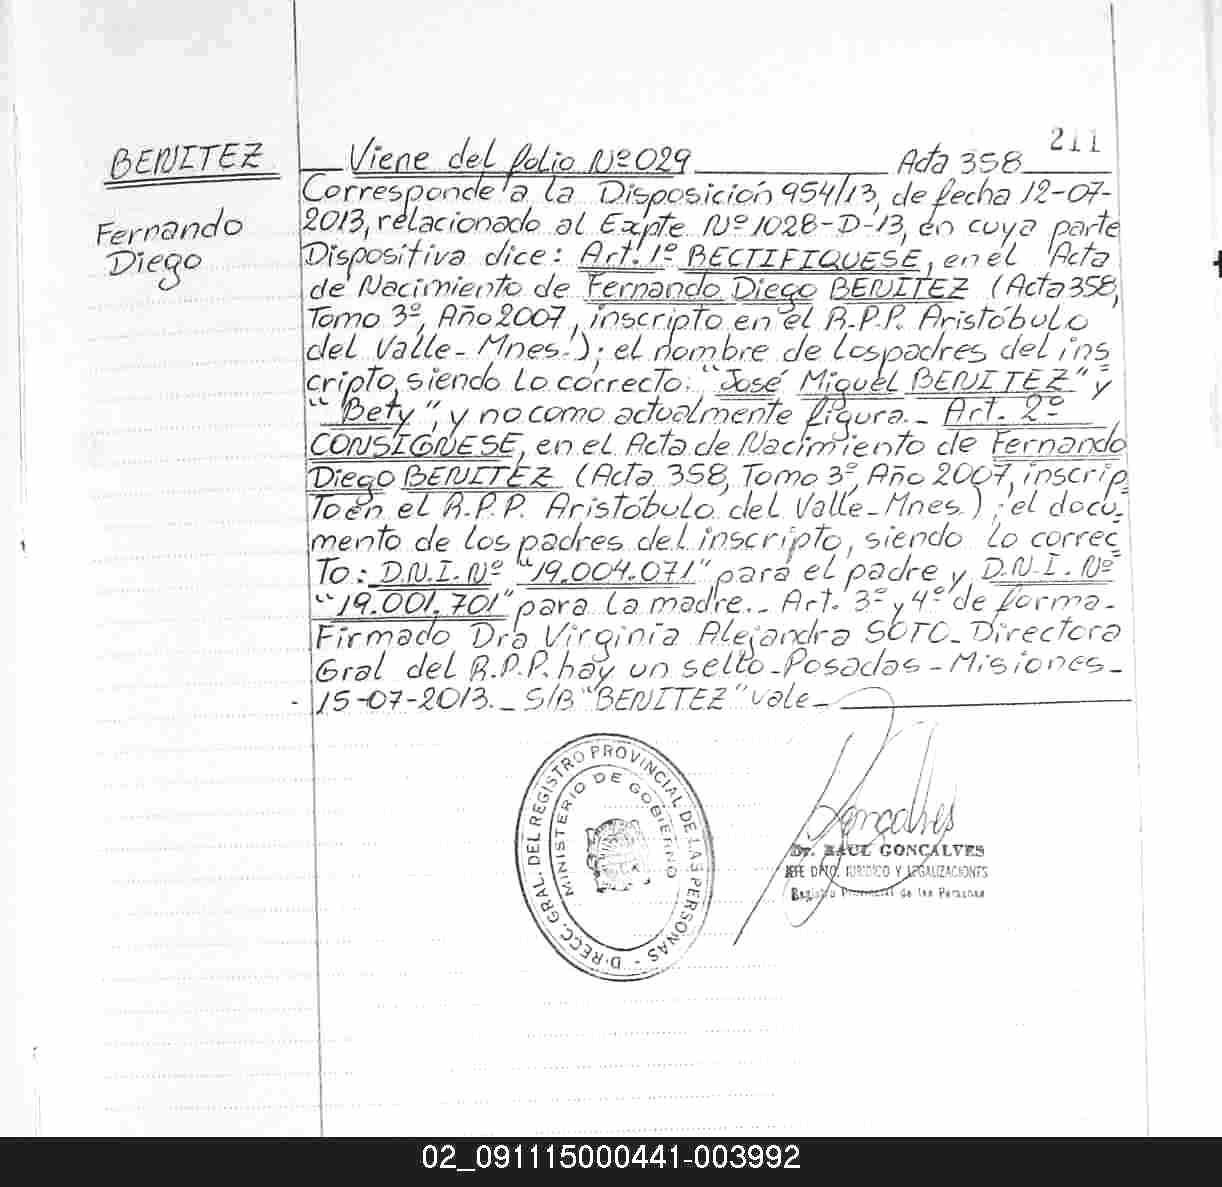 211
BENITEZ
Fernando
Diego
Viene del folio Nº 029 Acta 358
Corresponde a la Disposición 954/13, de fecha 12-07-
2013, relacionado al Expte Nº 1028-D-13, en cuya parte
Dispositiva dice: Art. 1º RECTIFIQUESE, en el Acta
de Nacimiento de Fernando Diego BENITEZ (Acta 358,
Tomo 3º, Año 2007, inscripto en el R.P.P. Aristóbulo
del Valle- Mnes.); el nombre de los padres del ins
cripto, siendo lo correcto: "José Miguel BENITEZ" y
"Bety", y no como actualmente figura.- Art. 2º
CONSIGNESE, en el Acta de Nacimiento de Fernando
Diego BENITEZ (Acta 358, Tomo 3º, Año 2007, inscrip
to en el R.P.P. Aristóbulo del Valle-Mnes.); el docu-
mento de los padres del inscripto, siendo lo correc
To: D.N.I. Nº "19.004.071" para el padre y D.N.I. Nº
"19.001.701" para la madre.- Art. 3º y 4º de forma-
Firmado Dra Virginia Alejandra SOTO- Directora
Gral del R.P.P. hay un sello-Posadas-Misiones-
15-07-2013.- S/B "BENITEZ" vale-
DIRECC. GRAL. DEL REGISTRO PROVINCIAL DE LAS PERSONAS -
MINISTERIO DE GOBIERNO
Goncalves
Dr. RAUL GONCALVES
JEFE DPTO. JURIDICO Y LEGALIZACIONES
Registro Provincial de las Personas
02_091115000441-003992